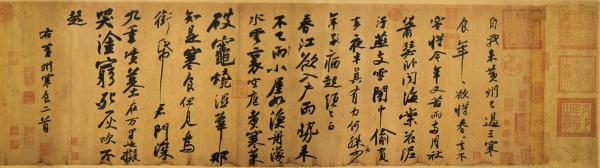 自我來黃州已過三寒
食年年欲惜春春去不
容惜今年又苦雨兩月秋
蕭瑟臥聞海棠花泥
污燕支雪闇中偷負
去夜半真有力何殊少
年子病起頭已白
春江欲入戶雨勢來
不已雨小屋如漁舟濛濛
水雲裏空庖煮寒菜
破竈燒濕葦那
知是寒食但見烏
銜帋君門深
九重墳墓在万里也擬
哭塗窮死灰吹不
起
右黃州寒食二首